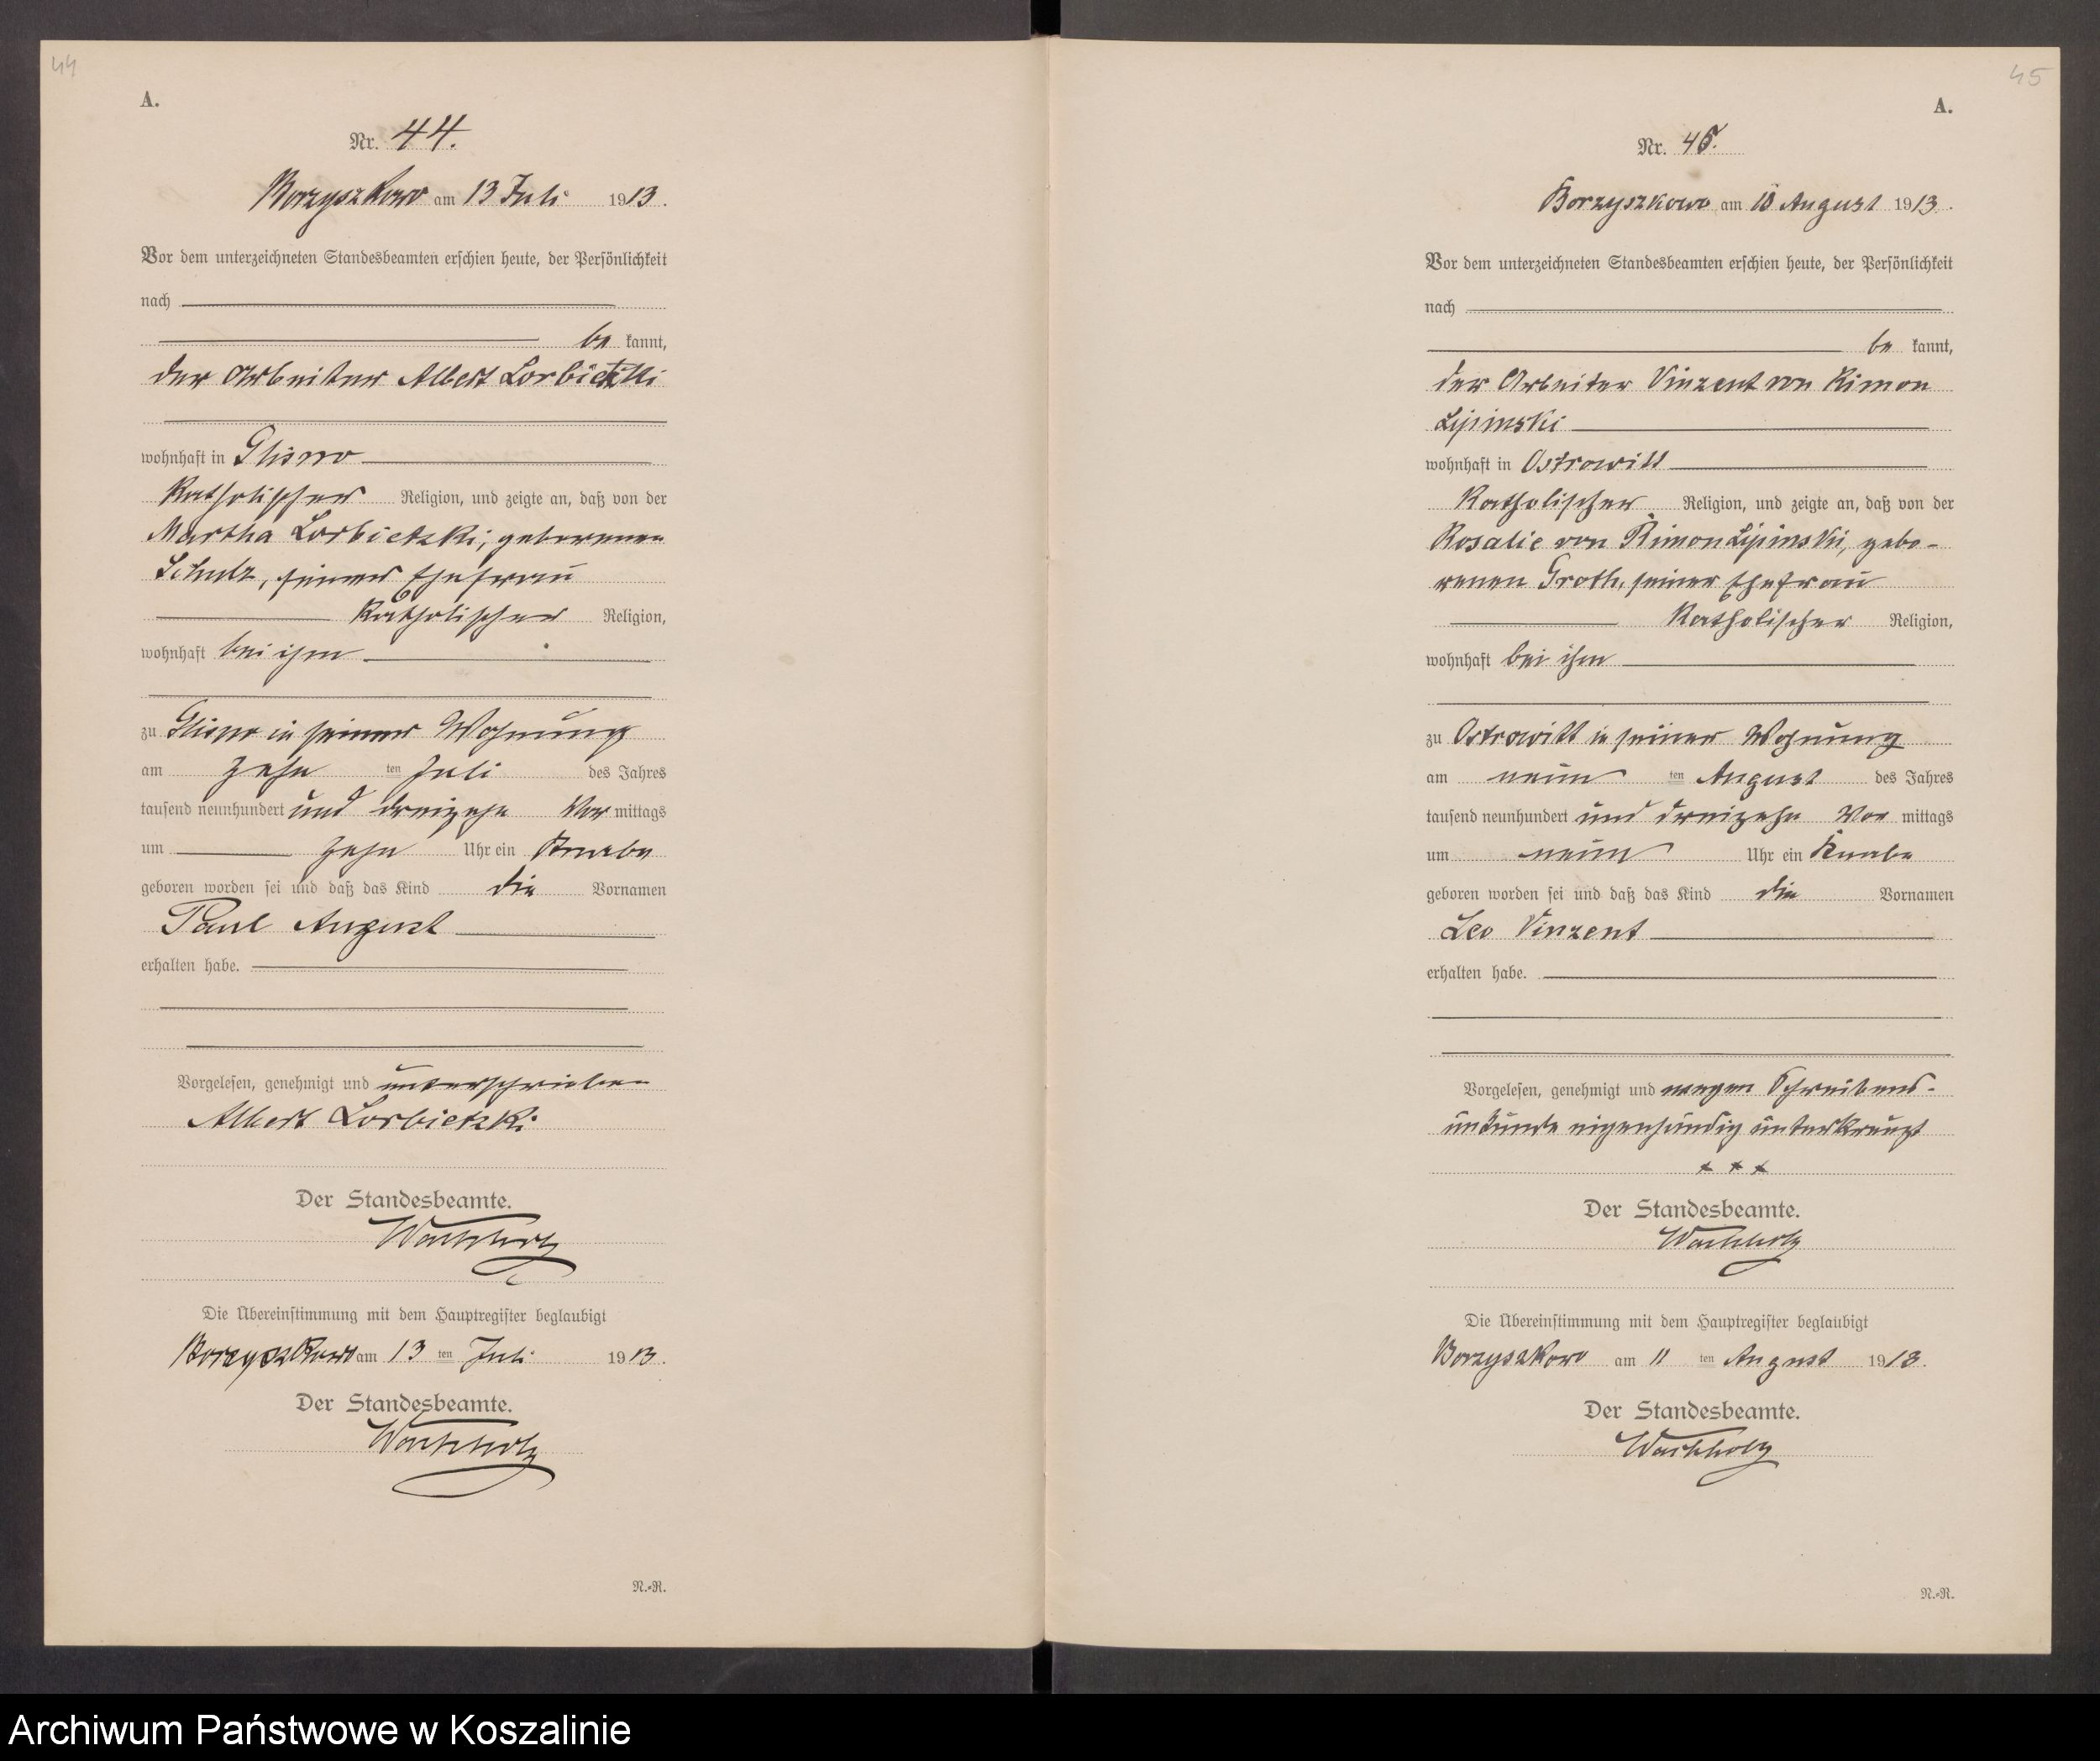 44
A.
Nr. 44.
Borzyszkowo am 13 Juli 1913.
Vor dem unterzeichneten Standesbeamten erschien heute, der Persönlichkeit
nach
be kannt,
der Arbeiter Albert Lorbietzki
wohnhaft in Glisno
katholischer Religion, und zeigte an, daß von der
Martha Lorbietzki, geborenen
Schulz, seiner Ehefrau
katholischer Religion,
wohnhaft bei ihm
zu Glisno in seiner Wohnung
am zehn ten Juli des Jahres
tausend neunhundert und dreizehn Vor mittags
um zehn Uhr ein Knabe
geboren worden sei und daß das Kind die Vornamen
Paul August
erhalten habe.
Vorgelesen, genehmigt und unterschrieben
Albert Lorbietzki
Der Standesbeamte.
Wachholz
Die Übereinstimmung mit dem Hauptregister beglaubigt
Borzyszkowo am 13 ten Juli 1913.
Der Standesbeamte.
Wachholz
N.-R.
45
A.
Nr. 45.
Borzyszkowo am August 1913.
Vor dem unterzeichneten Standesbeamten erschien heute, der Persönlichkeit
nach
be kannt,
der Arbeiter Vinzent von Rimon
Lipinski
wohnhaft in Ostrowitt
katholischer Religion, und zeigte an, daß von der
Rosalie von Rimon Lipinski, gebo-
renen Groth, seiner Ehefrau
katholischer Religion,
wohnhaft bei ihm
zu Ostrowitt in seiner Wohnung
am neun ten August des Jahres
tausend neunhundert und dreizehn Vor mittags
um neun Uhr ein Knabe
geboren worden sei und daß das Kind die Vornamen
Leo Vinzent
erhalten habe.
Vorgelesen, genehmigt und wegen Schreibens-
unkunde eigenhändig unterkreuzt
+ + +
Der Standesbeamte.
Wachholz
Die Übereinstimmung mit dem Hauptregister beglaubigt
Borzyszkowo am 11 ten August 1913.
Der Standesbeamte.
Wachholz
N.-R.
Archiwum Państwowe w Koszalinie